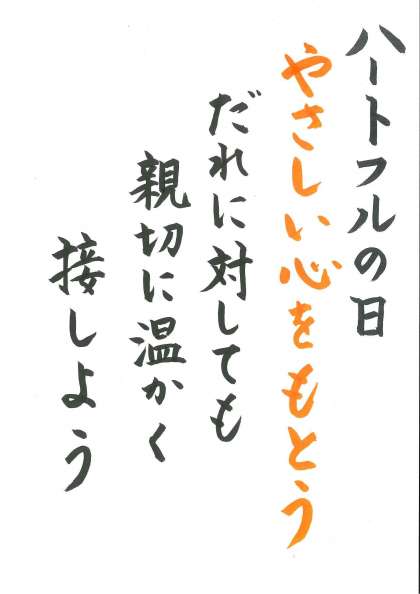 ハートフルの日
やさしい心をもとう
だれに対しても
親切に温かく
接しよう